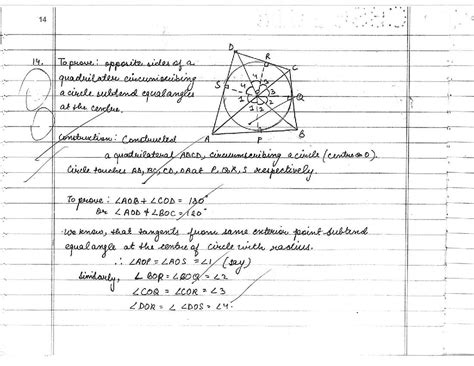 14
14. To prove: opposite sides of a
quadrilateral circumscribing
a circle subtend equal angles
at the centre.
D
R
C
S
Q
A
P
B
4 4 3 3 1 1 2 2
Construction: Constructed
a quadrilateral ABCD, circumscribing a circle (centre = O).
Circle touches AB, BC, CD, DA at P, Q, R, S respectively.
To prove: ∠AOB + ∠COD = 180°
Or ∠AOD + ∠BOC = 120°
We know, that tangents from same exterior point subtend
equal angle at the centre of circle with radius.
∴ ∠AOP = ∠AOS = ∠1 (say)
Similarly, ∠BOP = ∠BOQ = ∠2
∠COQ = ∠COR = ∠3
∠DOR = ∠DOS = ∠4.